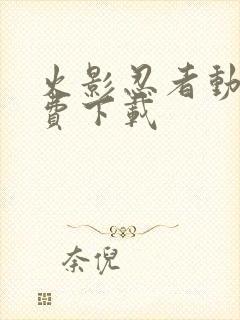 火影忍者動
費下載
奈倪